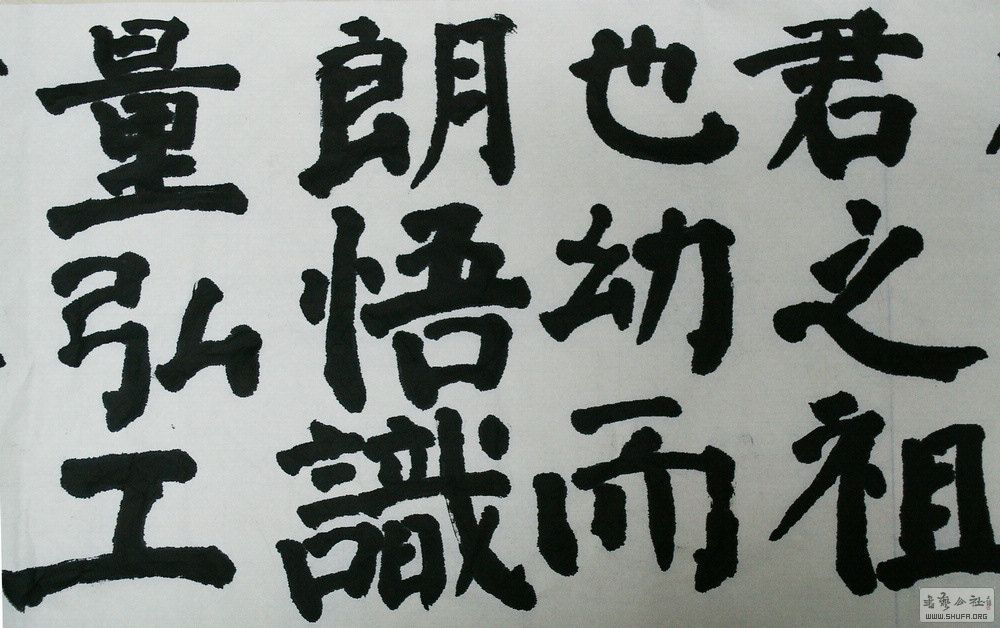 君之祖
也幼而
朗悟識
量弘工
書藝公社
WWW.SHUFA.ORG